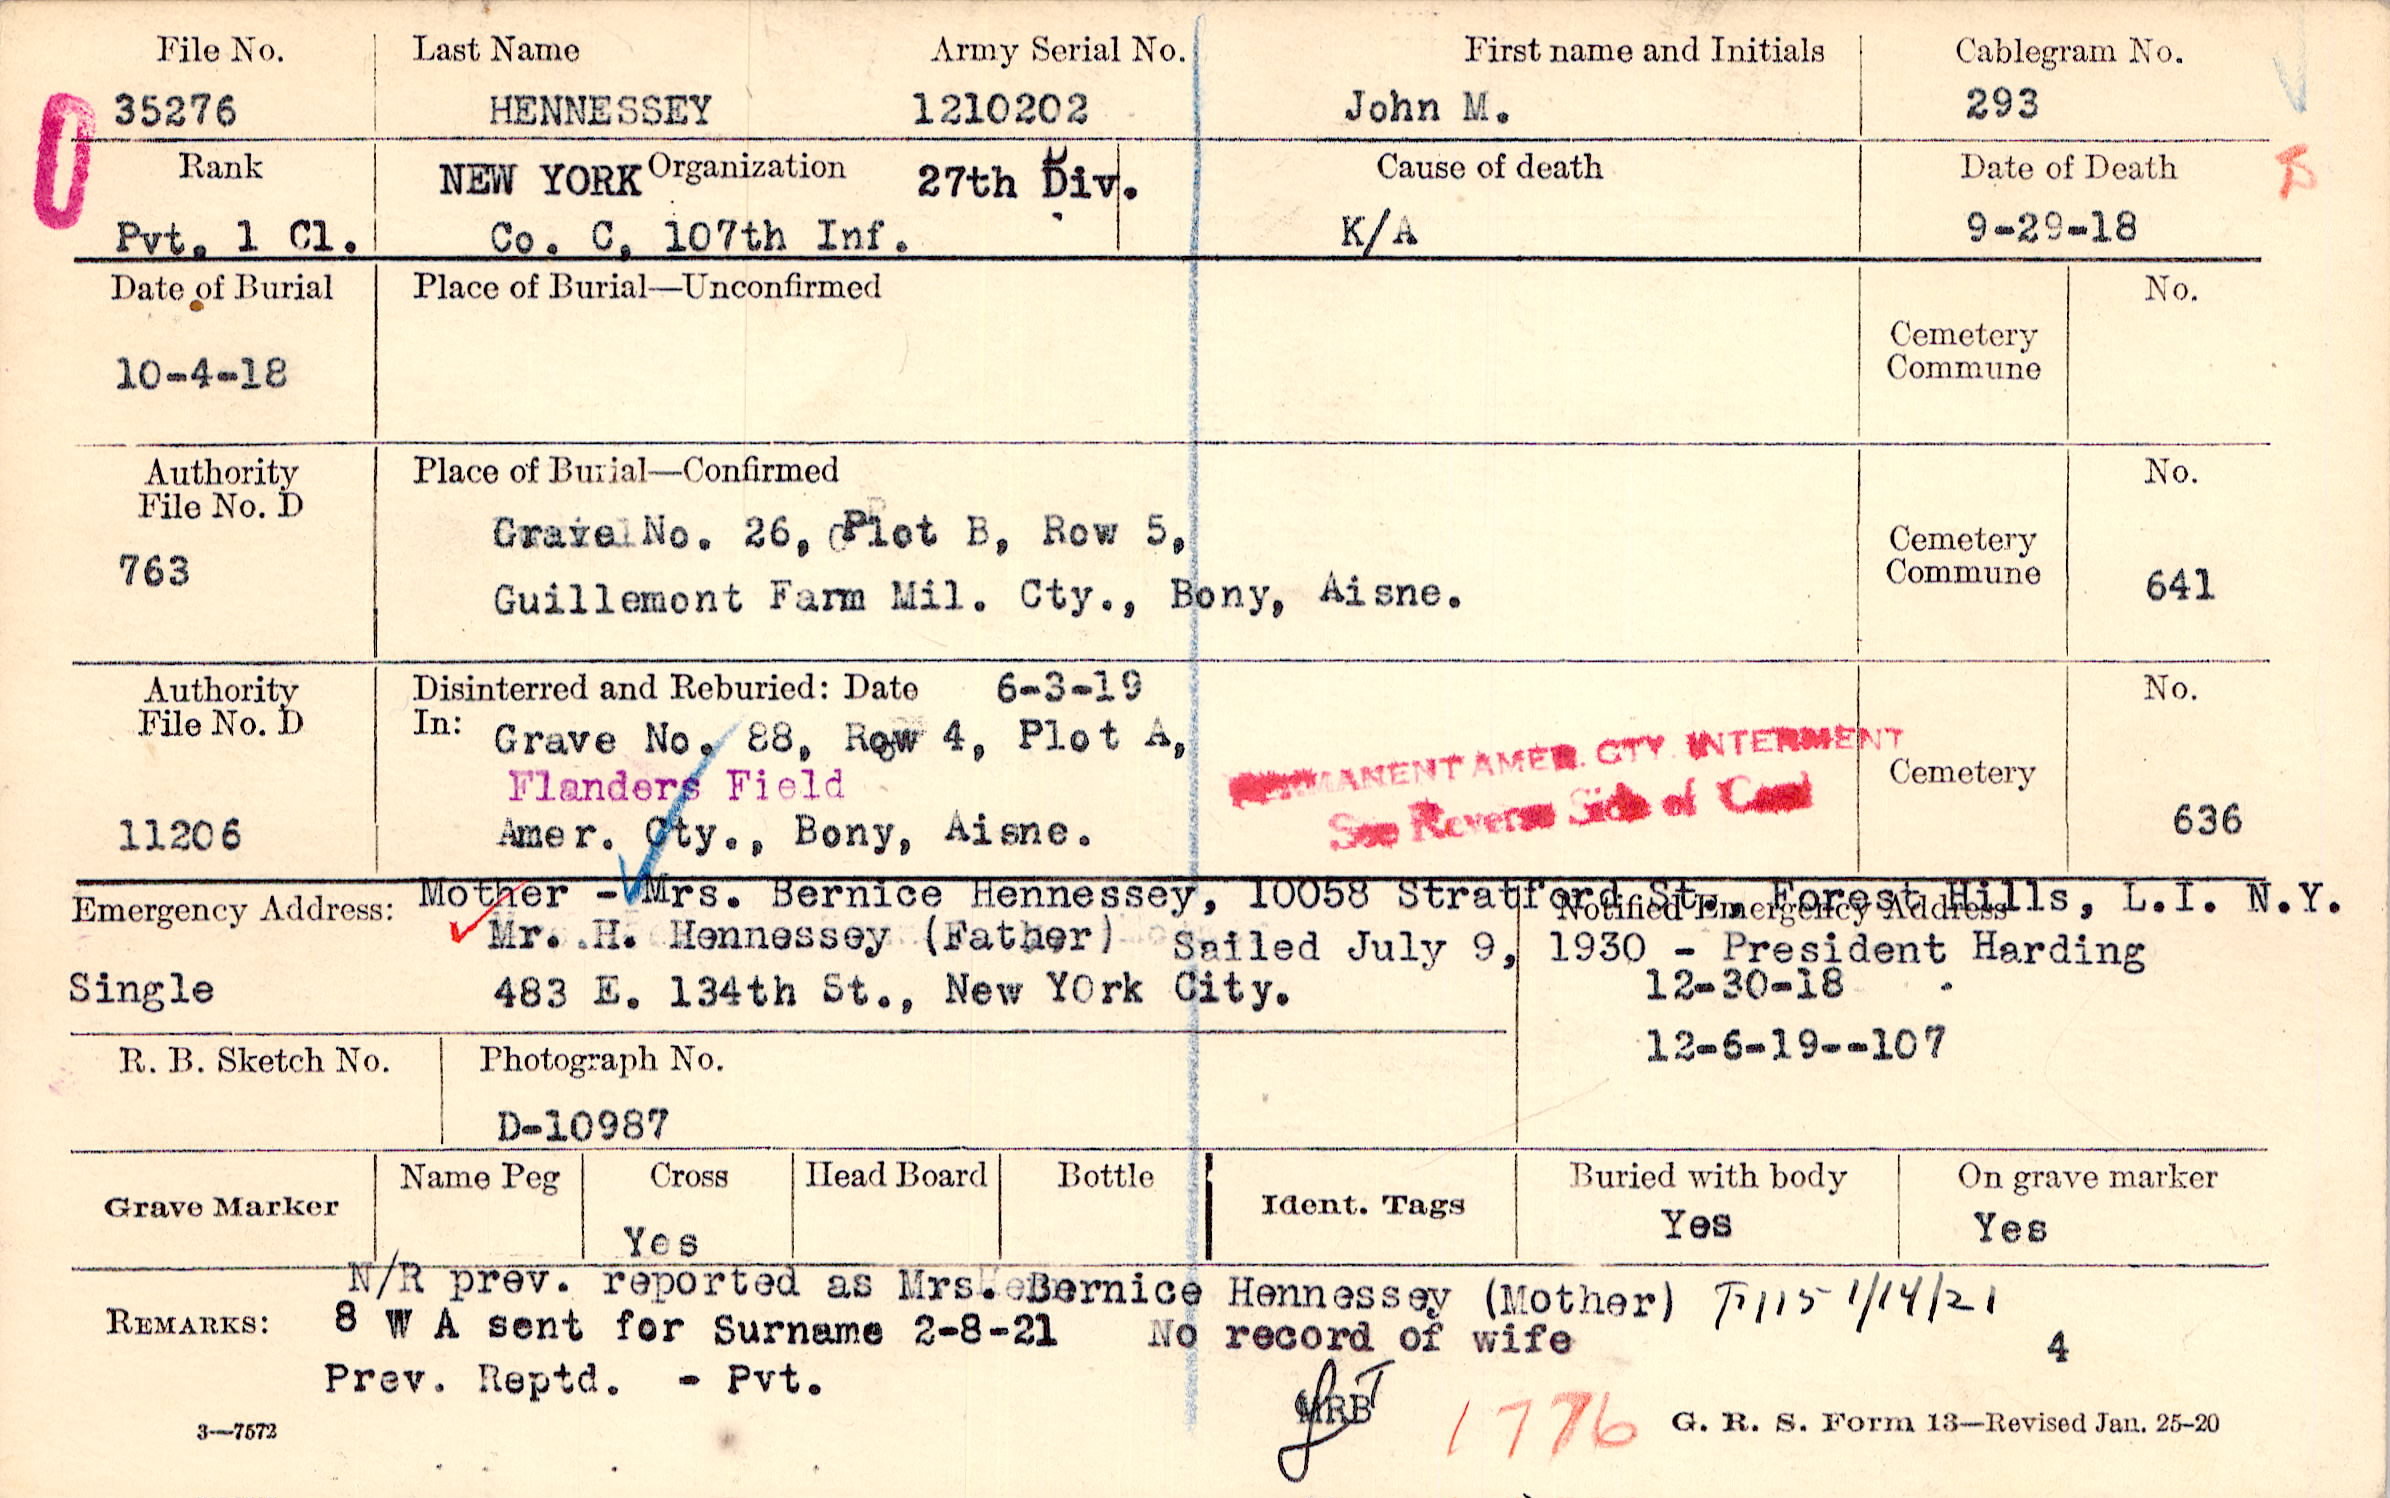 File No. Last Name Army Serial No. First name and Initials Cablegram No.
35276 HENNESSEY 1210202 John M. 293
Rank NEW YORK Organization 27th Div. Cause of death Date of Death
Pvt. 1 Cl. Co. C, 107th Inf. K/A 9-29-18
Date of Burial Place of Burial—Unconfirmed No.
Cemetery
Commune
10-4-18
Authority Place of Burial—Confirmed No.
File No. D
Grave No. 26, Plot B, Row 5,
Cemetery
Commune
763 641
Guillemont Farm Mil. Cty., Bony, Aisne.
Authority Disinterred and Reburied: Date 6-3-19 No.
File No. D In: Grave No. 88, Row 4, Plot A,
PERMANENT AMER. CTY. INTERMENT
Flanders Field Cemetery
See Reverse Side of Card
11206 Amer. Cty., Bony, Aisne. 636
Mother - Mrs. Bernice Hennessey, 10058 Stratford St., Forest Hills, L.I. N.Y.
Emergency Address: Notified Emergency Address
Mr. H. Hennessey (Father) Sailed July 9, 1930 - President Harding
Single 483 E. 134th St., New YOrk City. 12-30-18
12-6-19--107
R. B. Sketch No. Photograph No.
D-10987
Grave Marker Name Peg Cross Head Board Bottle Ident. Tags Buried with body On grave marker
Yes Yes Yes
N/R prev. reported as Mrs. Bernice Hennessey (Mother) 1/14/21
REMARKS: 8 W A sent for Surname 2-8-21 No record of wife 4
Prev. Reptd. - Pvt.
MRB 1776
3—7572 G. R. S. Form 13—Revised Jan. 25-20